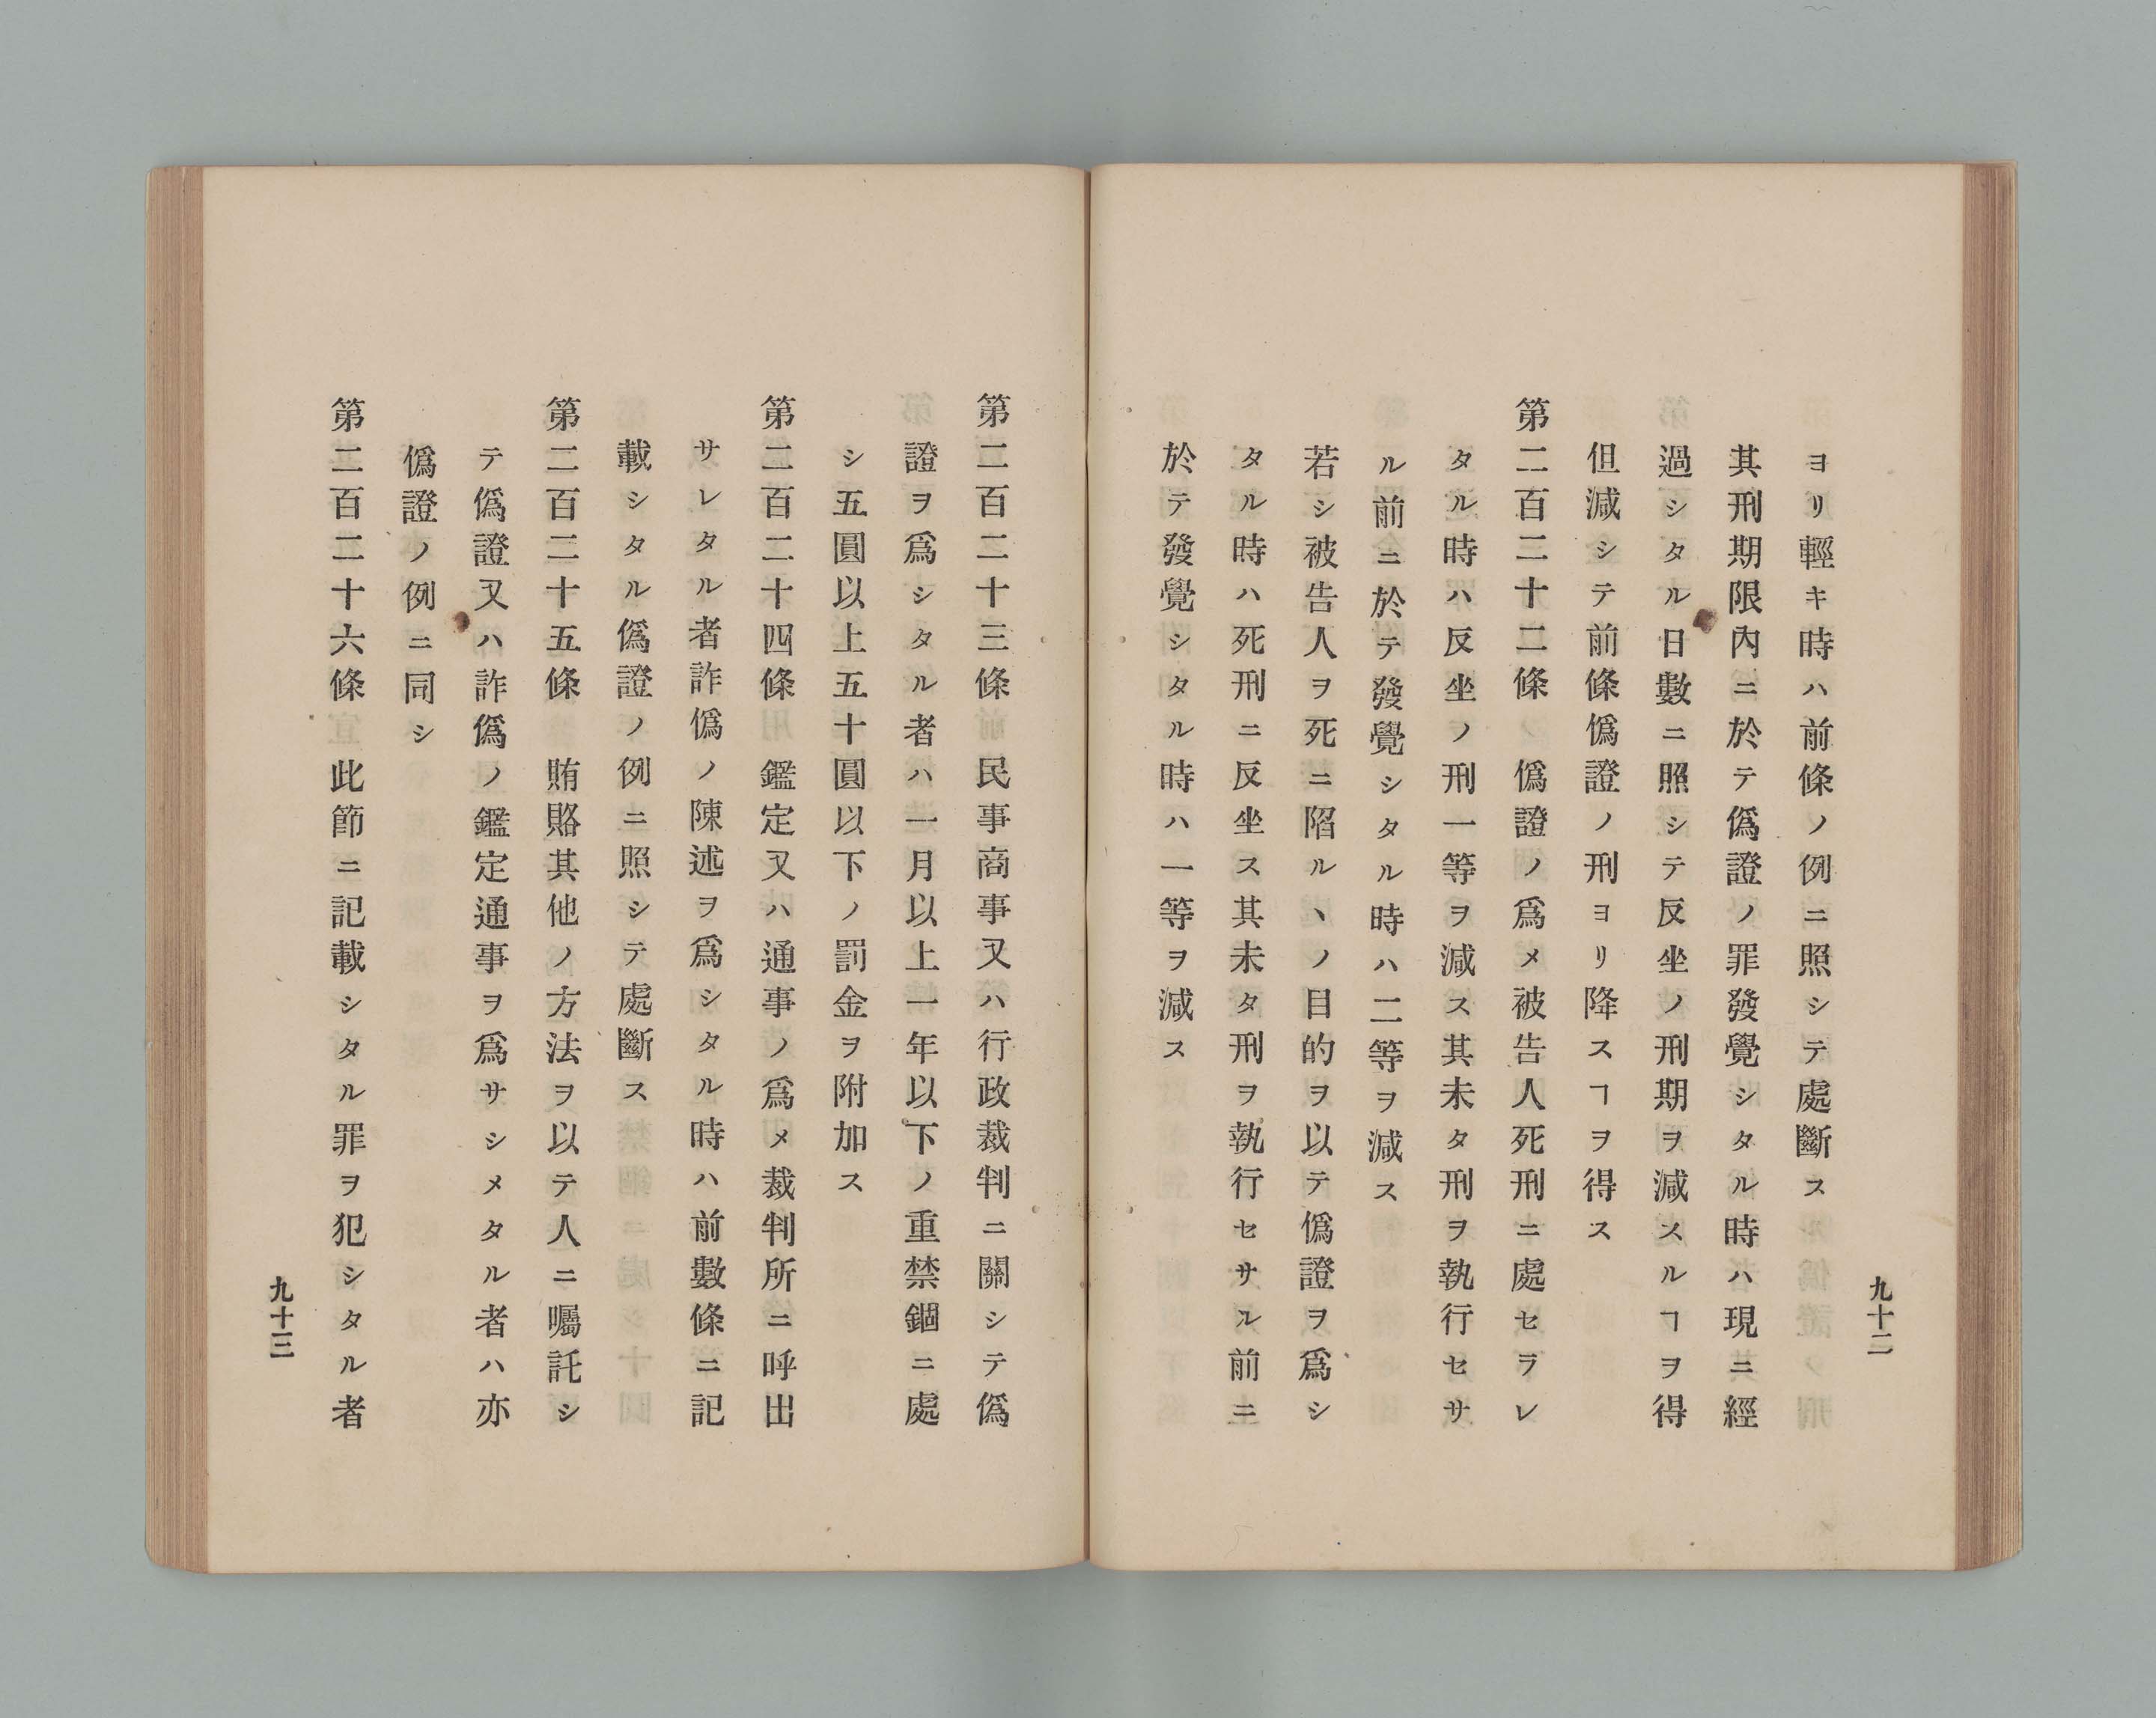 九十二
ヨリ輕キ時ハ前條ノ例ニ照シテ處斷ス
其刑期限內ニ於テ僞證ノ罪發覺シタル時ハ現ニ經
過シタル日數ニ照シテ反坐ノ刑期ヲ減スルヿヲ得
但減シテ前條僞證ノ刑ヨリ降スヿヲ得ス
第二百二十二條 僞證ノ爲メ被告人死刑ニ處セラレ
タル時ハ反坐ノ刑一等ヲ減ス其未タ刑ヲ執行セサ
ル前ニ於テ發覺シタル時ハ二等ヲ減ス
若シ被告人ヲ死ニ陷ルヽノ目的ヲ以テ僞證ヲ爲シ
タル時ハ死刑ニ反坐ス其未タ刑ヲ執行セサル前ニ
於テ發覺シタル時ハ一等ヲ減ス
第二百二十三條 民事商事又ハ行政裁判ニ關シテ僞
證ヲ爲シタル者ハ一月以上一年以下ノ重禁錮ニ處
シ五圓以上五十圓以下ノ罰金ヲ附加ス
第二百二十四條 鑑定又ハ通事ノ爲メ裁判所ニ呼出
サレタル者詐僞ノ陳述ヲ爲シタル時ハ前數條ニ記
載シタル僞證ノ例ニ照シテ處斷ス
第二百二十五條 賄賂其他ノ方法ヲ以テ人ニ囑託シ
テ僞證又ハ詐僞ノ鑑定通事ヲ爲サシメタル者ハ亦
僞證ノ例ニ同シ
第二百二十六條 此節ニ記載シタル罪ヲ犯シタル者
九十三